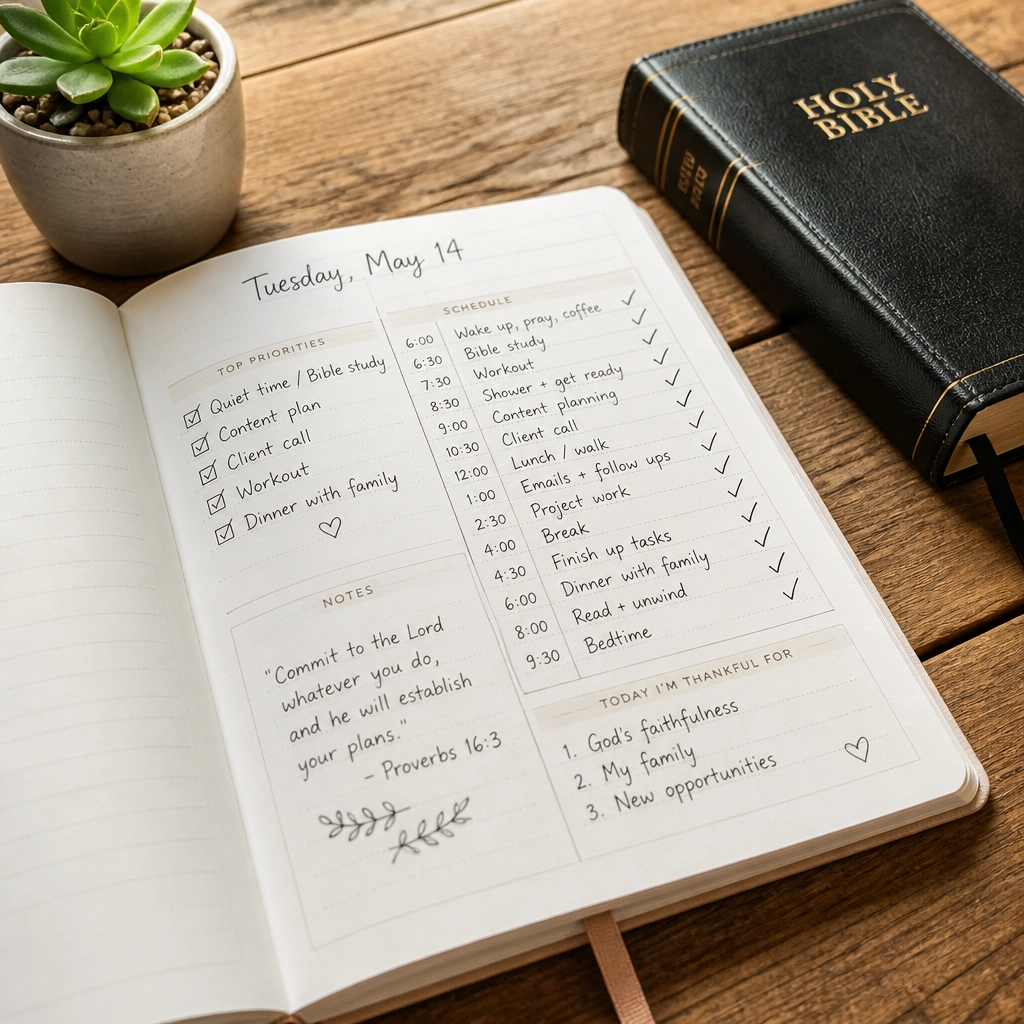 HOLY
BIBLE
Tuesday, May 14
TOP PRIORITIES
☑ Quiet time / Bible study
☑ Content plan
☑ Client call
☑ Workout
☑ Dinner with family
♡
SCHEDULE
6:00 Wake up, pray, coffee ✓
6:30 Bible study ✓
7:30 Workout ✓
8:30 Shower + get ready ✓
9:00 Content planning ✓
10:30 Client call ✓
12:00 Lunch / walk ✓
1:00 Emails + follow ups ✓
2:30 Project work ✓
4:00 Break ✓
4:30 Finish up tasks ✓
6:00 Dinner with family ✓
8:00 Read + unwind ✓
9:30 Bedtime ✓
NOTES
"Commit to the Lord
whatever you do,
and he will establish
your plans."
- Proverbs 16:3
TODAY I'M THANKFUL FOR
1. God's faithfulness
2. My family
3. New opportunities ♡